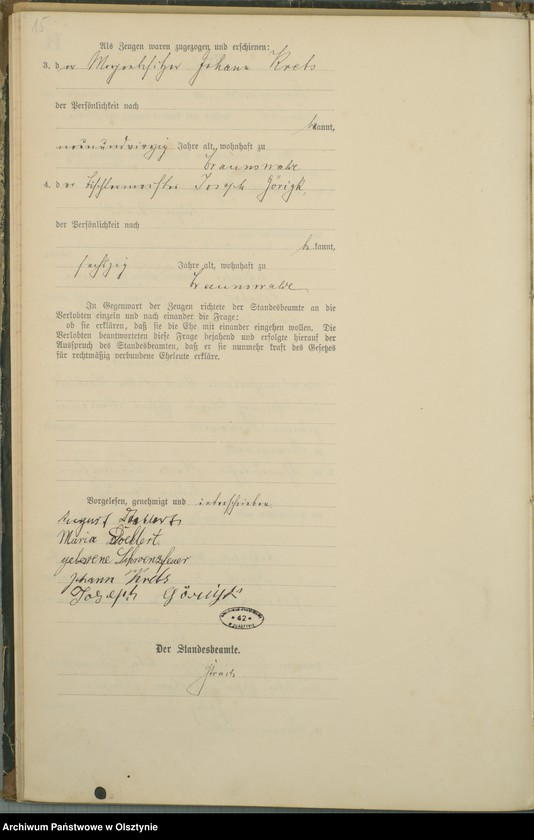 15
Als Zeugen waren zugezogen und erschienen:
3. der Johann Krebs
der Persönlichkeit nach
bekannt,
neunundvierzig Jahre alt, wohnhaft zu
Braunswalde
4. der Tischlermeister Joseph Görigk,
der Persönlichkeit nach
bekannt,
sechzig Jahre alt, wohnhaft zu
Braunswalde
In Gegenwart der Zeugen richtete der Standesbeamte an die
Verlobten einzeln und nach einander die Frage:
ob sie erklären, daß sie die Ehe mit einander eingehen wollen. Die
Verlobten beantworteten diese Frage bejahend und erfolgte hierauf der
Ausspruch des Standesbeamten, daß er sie nunmehr kraft des Gesetzes
für rechtmäßig verbundene Eheleute erkläre.
Vorgelesen, genehmigt und unterschrieben
August
Maria
geborene
Johann Krebs
Joseph Görigk
* 42 *
Der Standesbeamte.
Archiwum Państwowe w Olsztynie